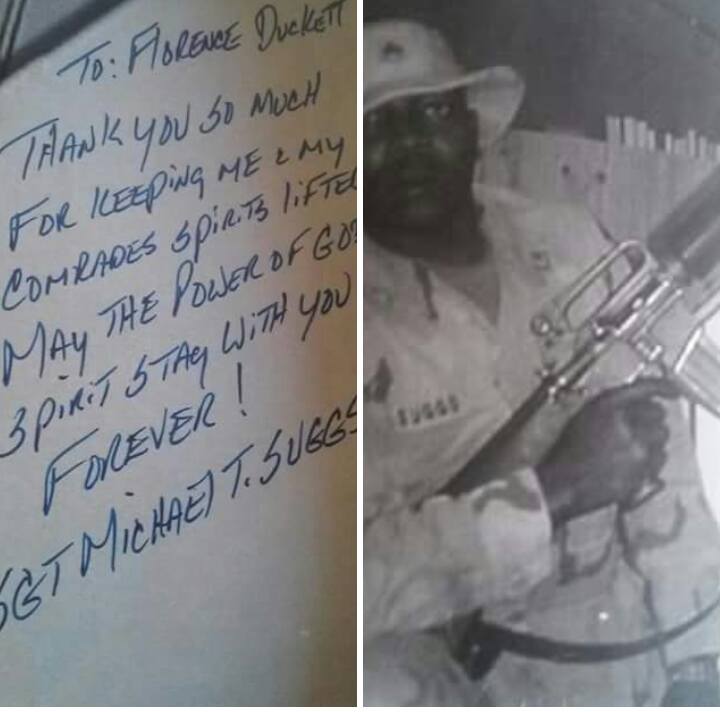 TO: FLORENCE DUCKETT
THANK YOU SO MUCH
FOR KEEPING ME & MY
COMRADES SPIRITS LIFTED
MAY THE POWER OF GODS
SPIRIT STAY WITH YOU
FOREVER!
SGT MICHAEL T. SUGGS
SUGGS